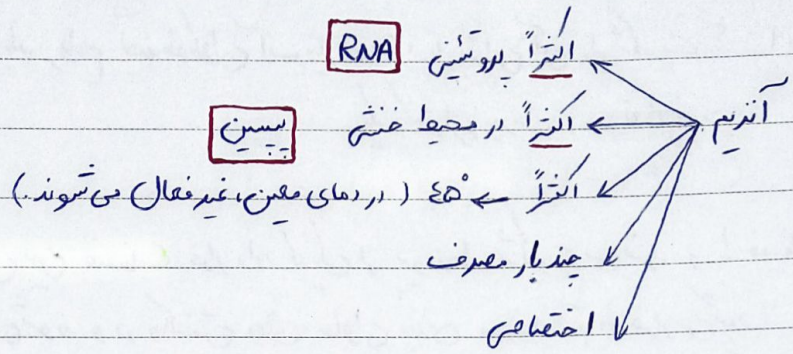 آنزیم
اکثراً پروتئینی RNA
اکثراً در محیط خنثی پپسین
اکثراً ← ۴۵° (در دمای معین، غیر فعال می شوند.)
چند بار مصرف
اختصاصی